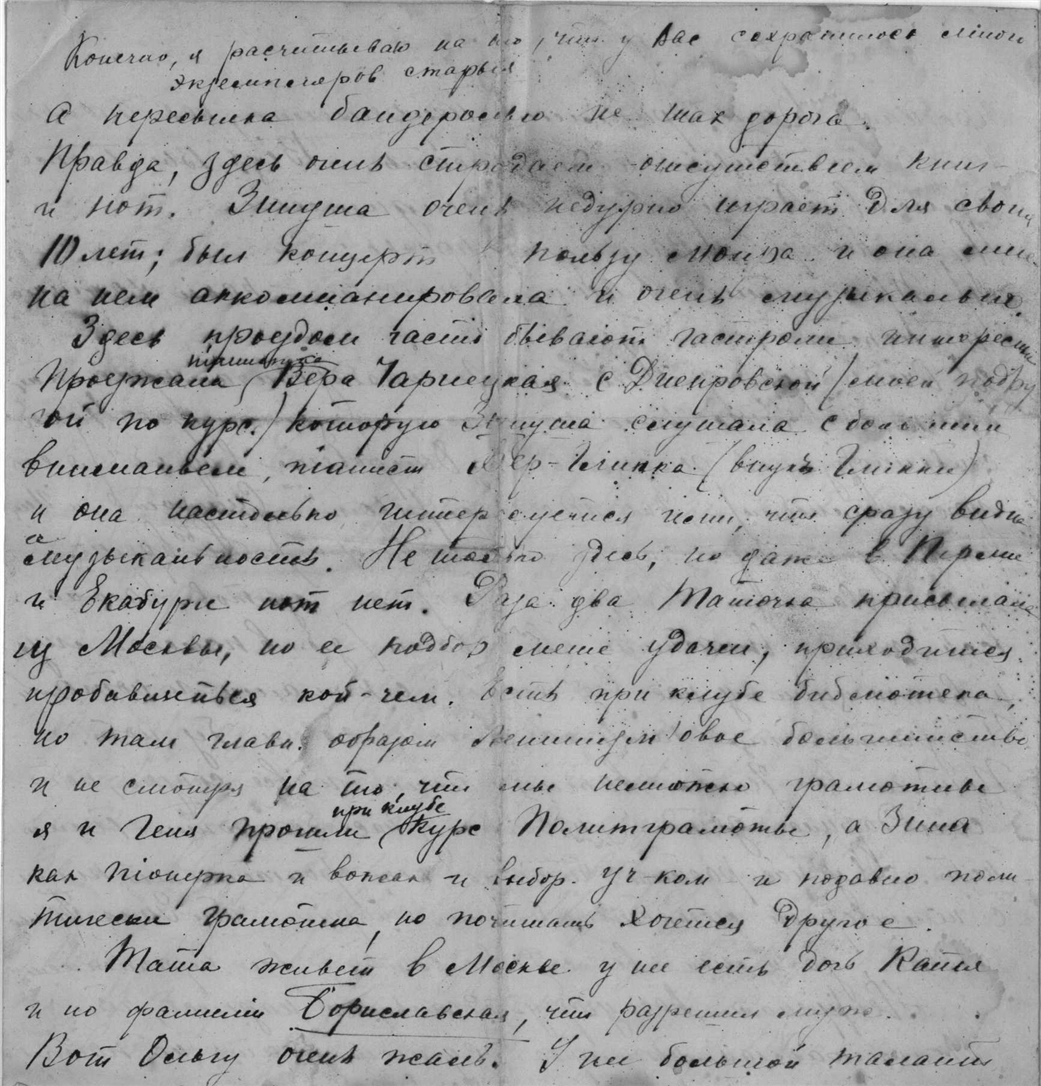 Конечно, я расчитываю на то, что у Вас сохранилось много
экземпляров старых
а пересылка бандеролью не так дорога.
Правда, здесь очень страдаем отсутствием книг
и нот. Зинуша очень недурно играет для своих
10 лет; был концерт в пользу Мопра и она
на нем аккомпанировала и очень музыкальна.
Здесь проездом часто бывают гастроли интересные
Проезжала пианистка Вера Чарнецкая с Днепровской (моей подру
гой по курс.) которую Зинуша слушала с большим
вниманьем, пианист Глинка (внук Глинки)
и она настолько интересуется ими, что сразу видна
музыкальность. Не только здесь, но даже в Перми
и Екабурге нот нет. Раза два Таточка присылала
из Москвы, но ее подбор менее удачен, приходится
пробавляться кой-чем. Есть при клубе библиотека,
но там главн. образом большинство
и не смотря на то, что мы немножко грамотны
я и Геня прошли при клубе курс Политграмоты, а Зина
как пионерка и вожак и выбор. Уч-ком и подавно поли-
тически грамотна, но почитать хочется другое.
Тата живет в Москве у нее есть дочь Катя
и по фамилии Бориславская, что разрешил муж.
Вот Ольгу очень жаль. У ней большой талант